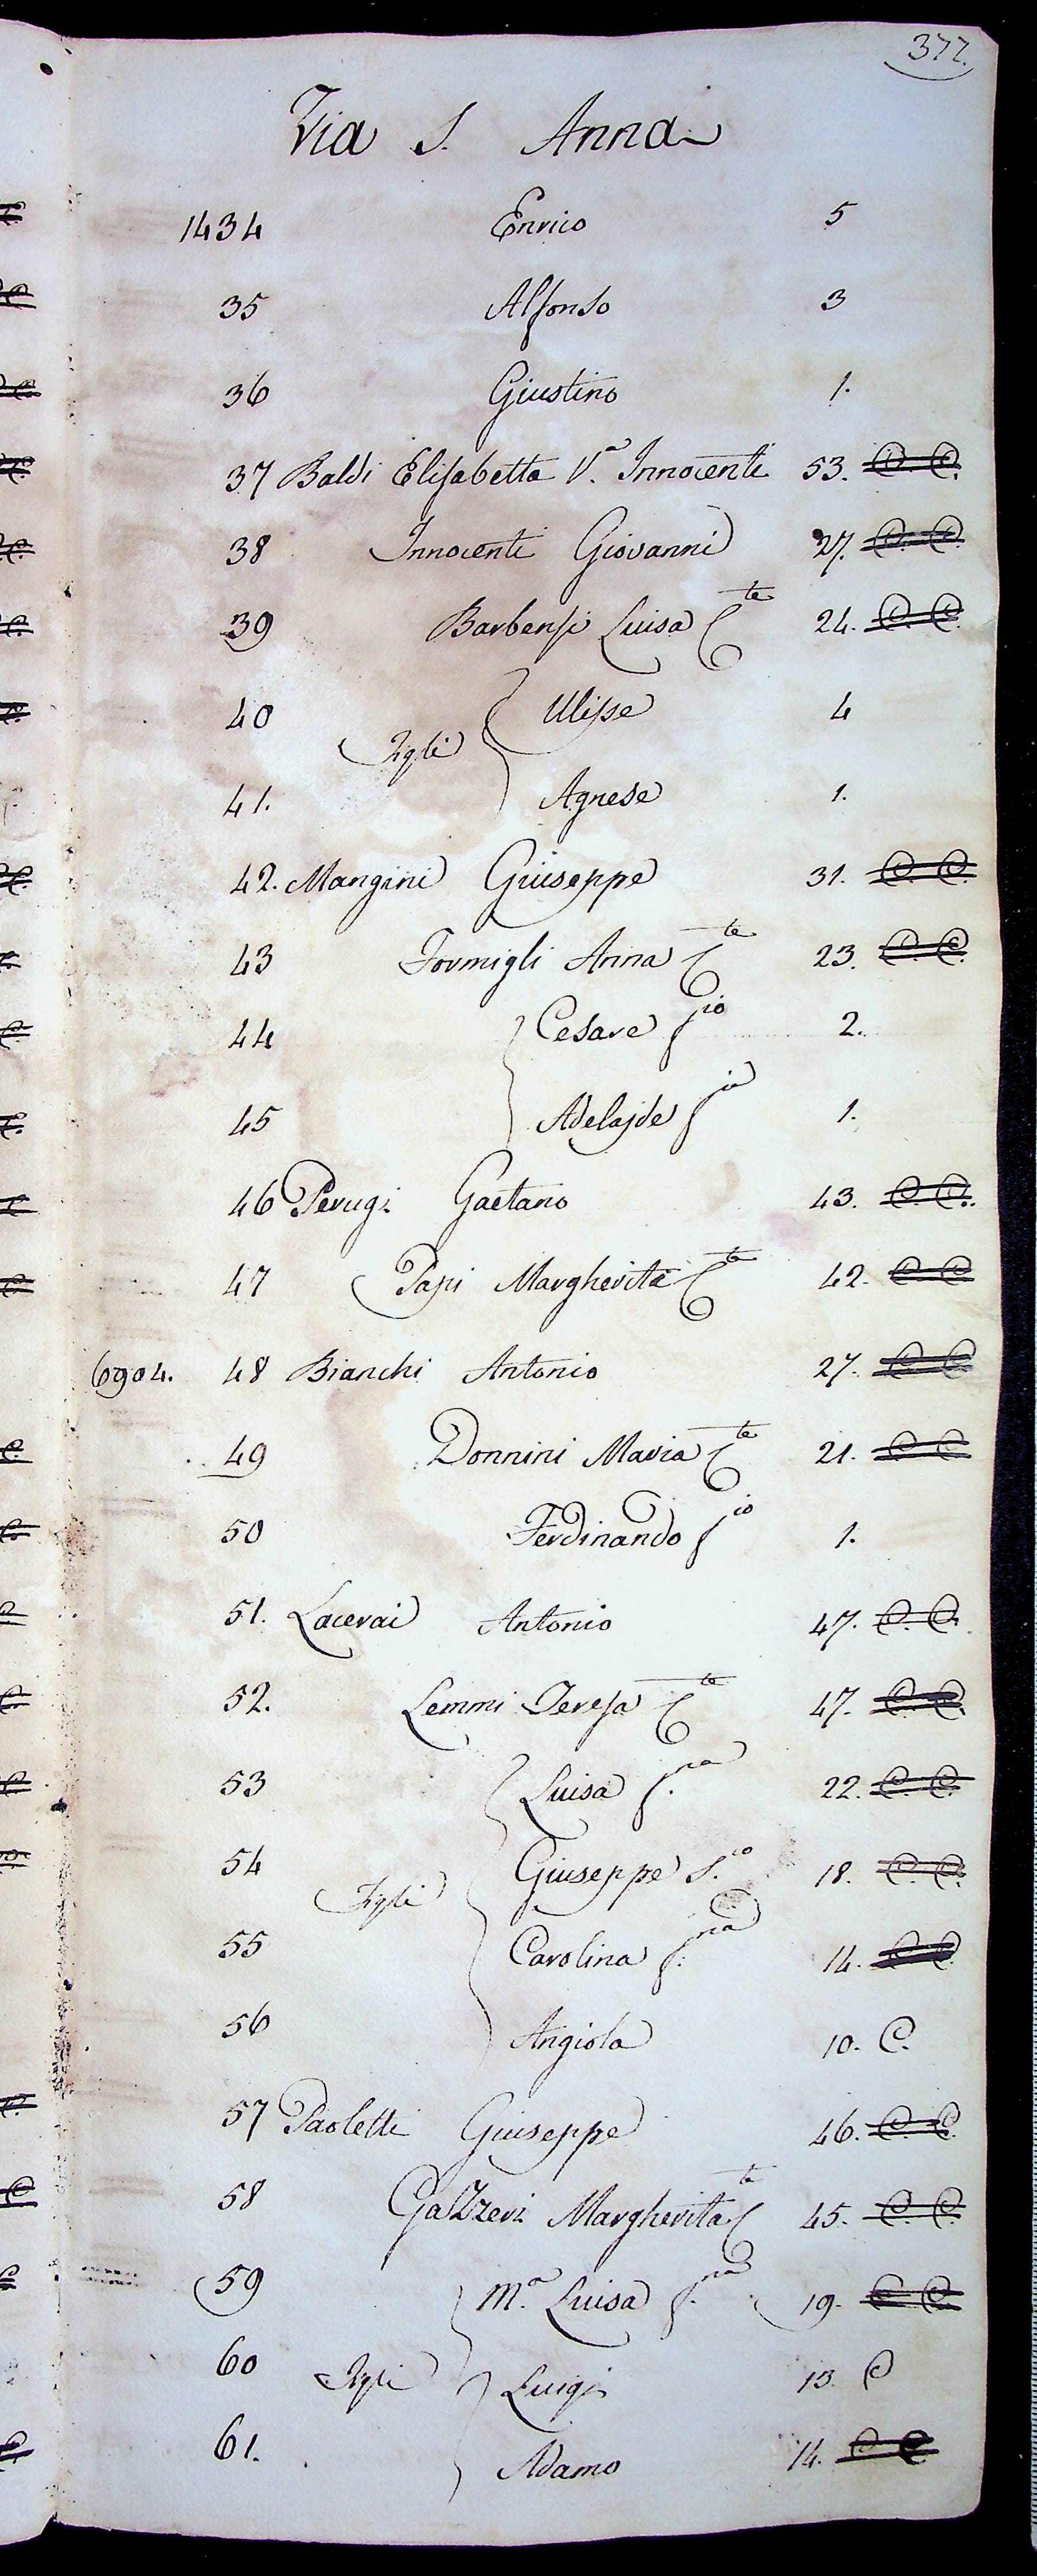 377.
Via S. Anna
1434 Enrico 5
35 Alfonso 3
36 Giustino 1.
37 Baldi Elisabetta V.a Innocenti 53. C. C.
38 Innocenti Giovanni 27. C. C.
39 Barbensi Luisa C.te 24. C. C.
40 Ulisse 4
Figli
41. Agnese 1.
42. Mangini Giuseppe 31. C. C.
43 Formigli Anna C.te 23. C. C.
44 Cesare f.io 2.
45 Adelajde f.ia 1.
46 Perugi Gaetano 43. C. C.
47 Papi Margherita C.te 42. C. C.
6904. 48 Bianchi Antonio 27. C C
49 Donnini Maria C.te 21. C C
50 Ferdinando f.io 1.
51. Antonio 47. C. C.
52. Lemmi Teresa C.te 47. C. C.
53 Luisa f.na 22. C. C.
54 Giuseppe S.io 18. C. C.
Figli
55 Carolina f.na 14. C C
56 Angiola 10. C.
57 Paoletti Giuseppe 46. C. C.
58 Gazzeri Margherita C.te 45. C. C.
59 M.a Luisa f.na 19. C. C.
60 Figli Luigi 13. C
61. Adamo 14. C C